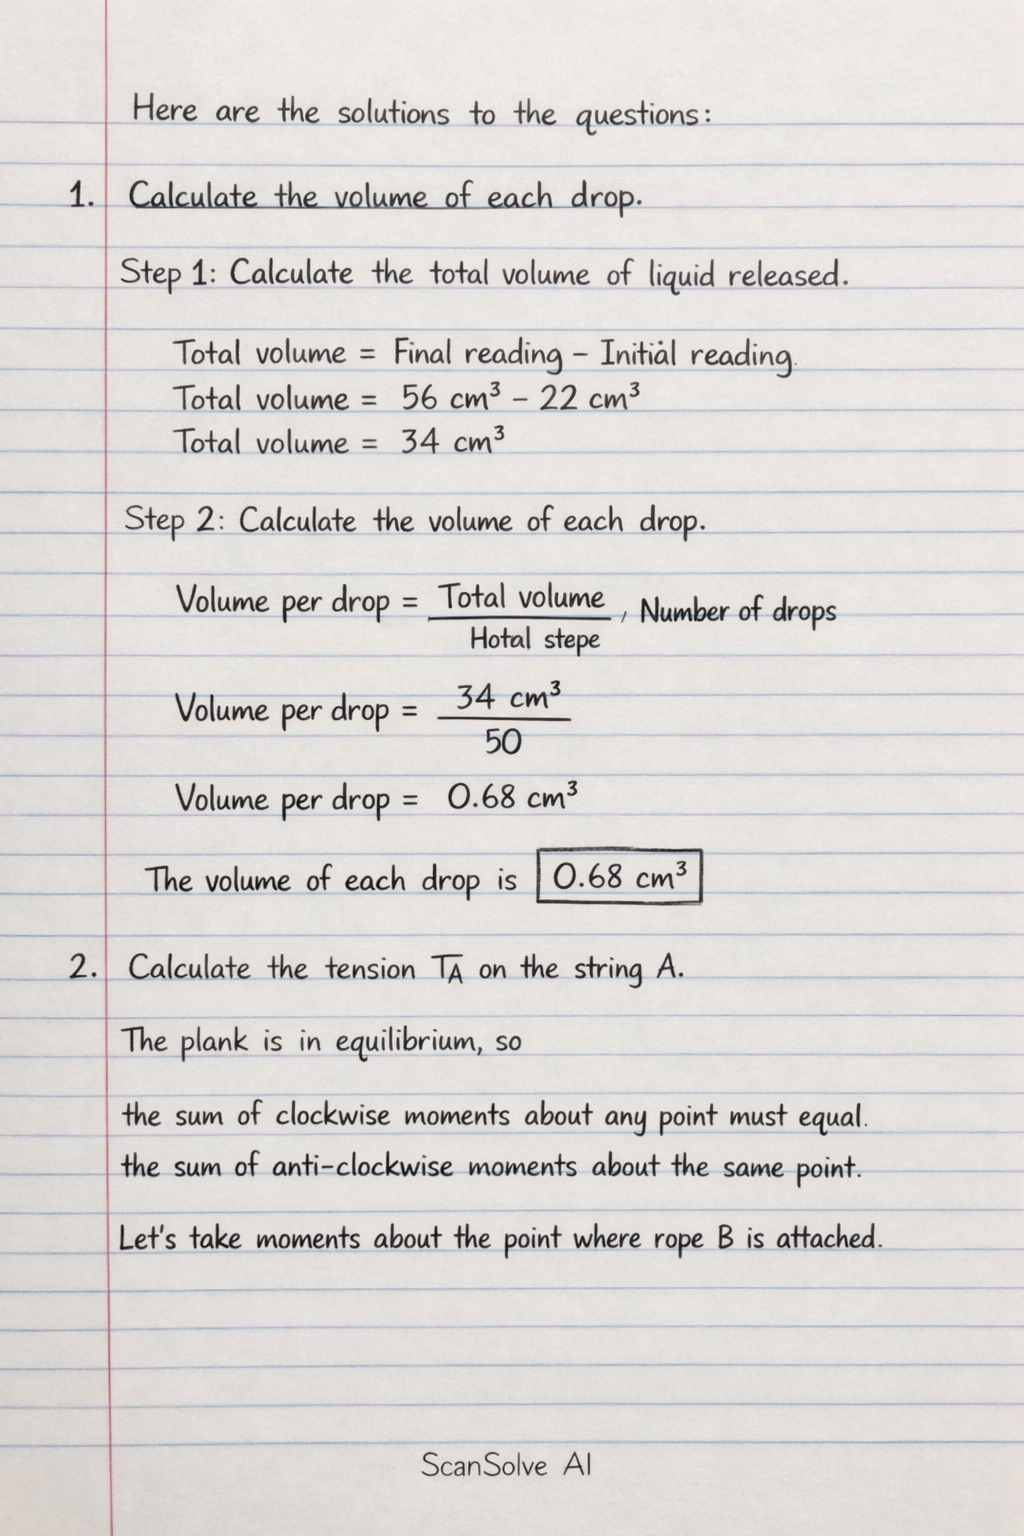 Here are the solutions to the questions:
1. Calculate the volume of each drop.
Step 1: Calculate the total volume of liquid released.
Total volume = Final reading – Initial reading.
Total volume = 56 cm³ – 22 cm³
Total volume = 34 cm³
Step 2: Calculate the volume of each drop.
Volume per drop = Total volume / Hotal stepe , Number of drops
Volume per drop = 34 cm³ / 50
Volume per drop = 0.68 cm³
The volume of each drop is 0.68 cm³
2. Calculate the tension T_A on the string A.
The plank is in equilibrium, so
the sum of clockwise moments about any point must equal.
the sum of anti-clockwise moments about the same point.
Let's take moments about the point where rope B is attached.
ScanSolve AI